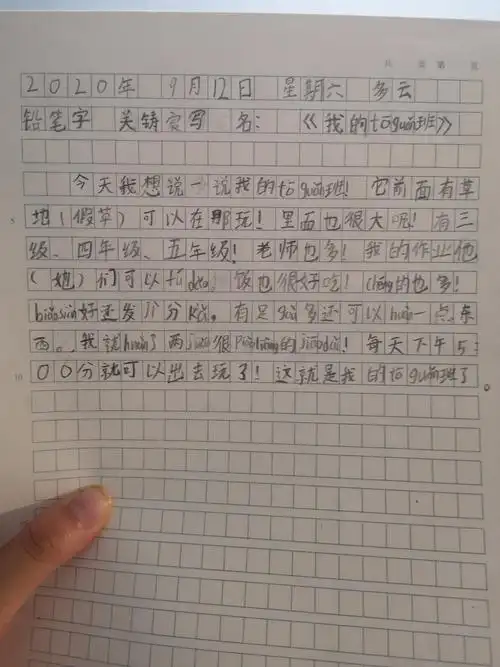 2020年 9月12日 星期六 多云
铅笔字 关铸宸写 名：《我的tōguǎn班》
今天我想说一说我的tō guǎn班！它前面有草
地（假草）可以在那玩！里面也很大呢！有三
级、四年级、五年级！老师也多！我的作业他
（她）们可以 饭也很好吃！chéng的也多！
biǎoxiàn好还发几分kǎ。有足gòu多还可以huàn一点东
西。我就huàn了两 很piàoliàng的 ！每天下午5:
00分就可以出去玩了！这就是我的tō guǎn班了。
5
10